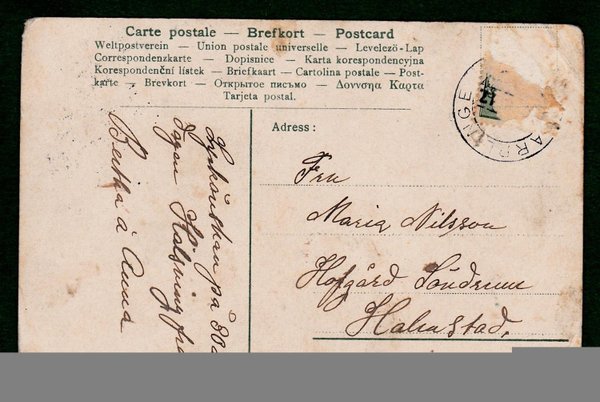 Carte postale — Brefkort — Postcard
Weltpostverein — Union postale universelle — Levelezö-Lap
Correspondenzkarte — Dopisnice — Karta korespondencyjna
Korespondenční lístek — Briefkaart — Cartolina postale — Post-
karte — Brevkort — Открытое письмо — Δονυσηα Καρτα
Tarjeta postal.
Adress:
Fru
Maria Nilsson
Hofgård Söndrum
Halmstad.
Lyckönskan på
Dagen Hälsning
Bertha å Anna